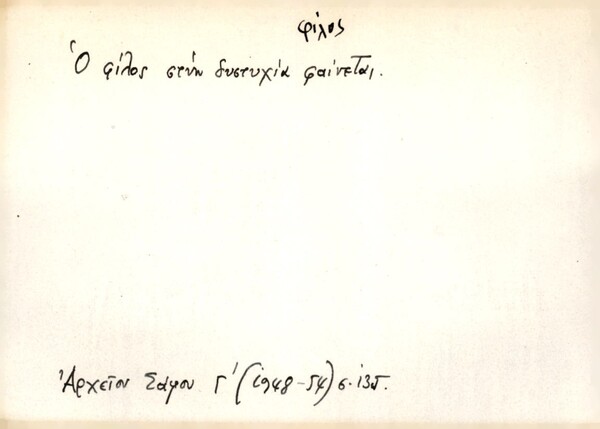 φίλος
Ὁ φίλος στὴν δυστυχία φαίνεται.
Ἀρχεῖον Σάμου Γ' (1948-54) σ. 135.